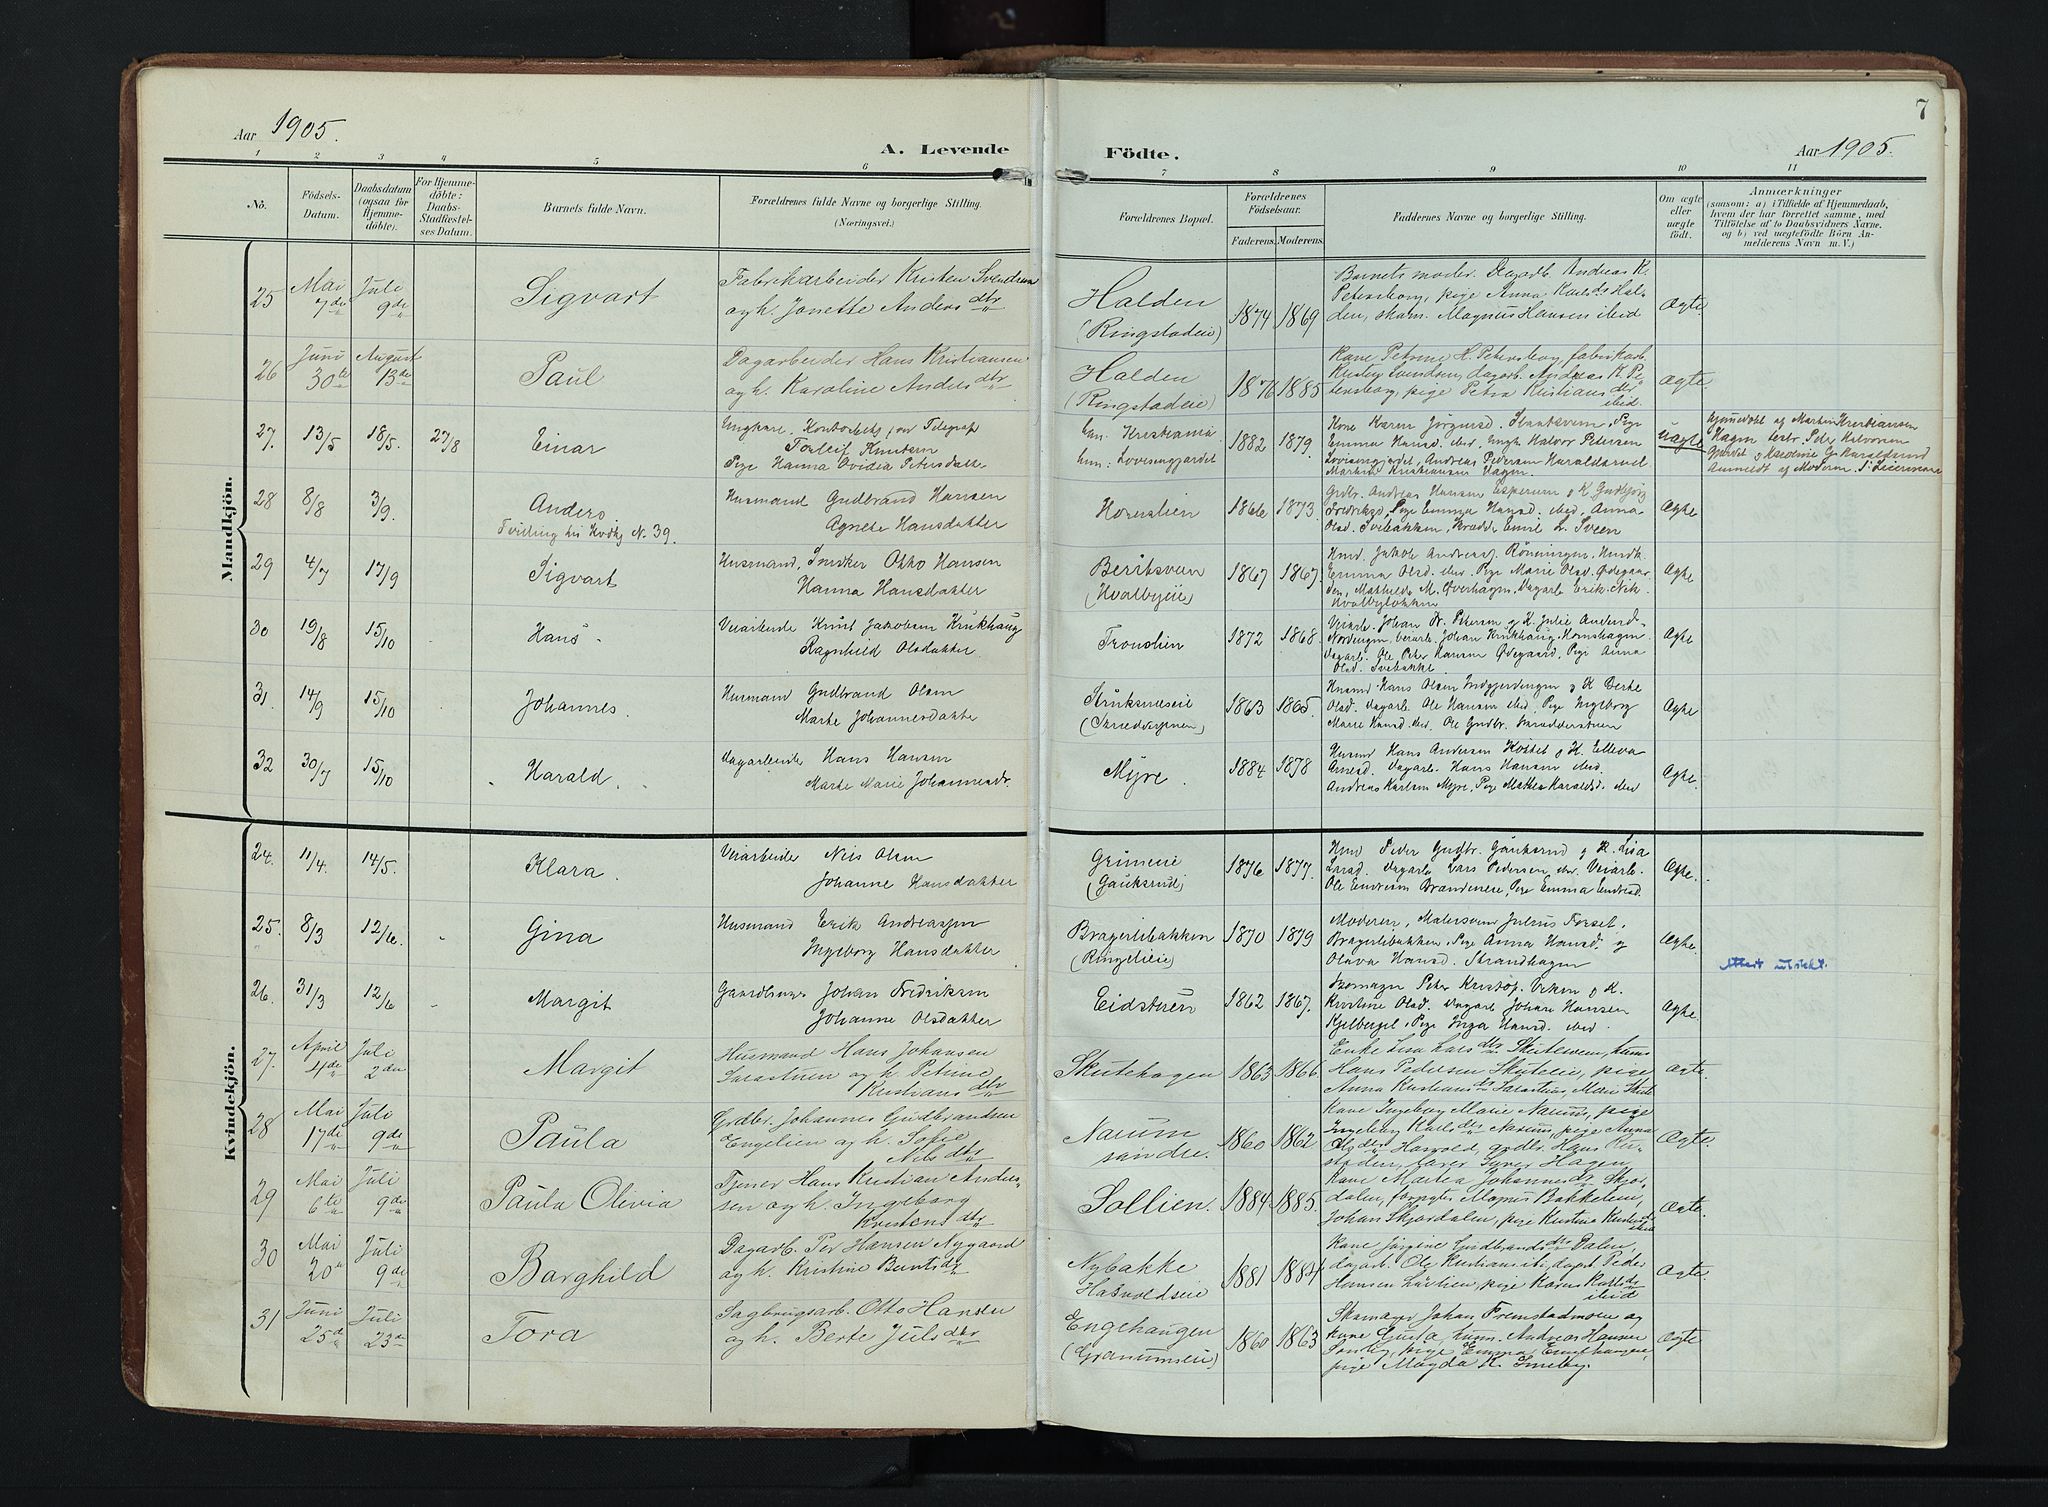 7
Aar 1905.
A. Levende Födte.
Aar 1905.
1 2 3 4 5 6 7 8 9 10 11
No.
Födsels-Datum.
Daabsdatum (ogsaa for Hjemme-döbte).
For Hjemme-döbte: Daabs-Stadfæstel-ses Datum.
Barnets fulde Navn.
Forældrenes fulde Navne og borgerlige Stilling. (Næringsvei.)
Forældrenes Bopæl.
Forældrenes Födselsaar.
Faderens. Moderens.
Faddernes Navne og borgerlige Stilling.
Om ægte eller uægte født.
Anmærkninger
(saasom: a) i Tilfælde af Hjemmedaab, hvem der har forrettet samme, med Tilföielse af to Daabsvidners Navne, og b) ved uægtefödte Börn An-melderens Navn m. V.)
Mandkjön.
25 Mai 7de Juli 9de Sigvart Fabrikarbeider Kristen Svendsen
og h. Jonette Andersdtr Halden (Ringstadeie) 1874 1869
Barnets moder. Dagarb. Andreas K.
Petersborg, pige Anna Karlsds Hal-
den, skom. Magnus Hansen ibid Ægte.
26 Juni 30te August 13de Paul Dagarbeider Hans Kristiansen
og h. Karoline Andersdtr Halden (Ringstadeie) 1876 1885
Kone Petrine H. Petersborg, fabrikarb.
Kristen Svendsen, dagarb. Andreas K. Pe-
tersborg, pige Petra Kristiansdtr ibid. Ægte
27. 13/5 18/5. 27/8 Einar Ungkare. Kontorbetj. ved Telegraf
Torleif Knutsen
Pige Hanna Ovidia Petersdatter
han: Kristiania
hun: Lovisengjerdet 1882 1879.
Kone Karen Jörgensd.
Emma Hansd. ibid, Ungk Halvor Petersen
Lovisengjerdet, Andreas Pedersen
Martin Kristiansen Hagen Uægte
Hjemmedøbt af Martin Kristiansen
Hagen testr. Peder Halvorsen
Anmeldt af Moderen.
28 8/8 3/9. Anders
Tvilling til Kvdkj N. 39.
Husmand Gudbrand Hansen
Agnete Hansdatter Hornslien 1866 1873.
Grdbr. Andreas Hansen Esperum
Fredriksd, Pige Emma Hansd. ibid, Anna
Olsd. Svebakken, Skrædd Emil L. Sveen Ægte
29 4/7 17/9 Sigvart Husmand, Snedker Otto Hansen
Hanna Hansdatter Beritsveen (Hvalbyeie) 1867 1867.
Husmd. Jakob Andreas. Rönningen,
Emma Olsd. ibid. Pige Marie Olsd. Ødegaar-
den, Mathilde M. Øverhagen, Dagarb Erik Nik.
Hvalbyløkken Ægte
30 19/8 15/10 Hans. Veiarbeider Knut Jakobsen Krukhaug
Ragnhild Olsdatter. Tronslien 1872 1868.
Veiarb. Johan Dr. Petersen og K. Julie Andersd.
Nordengen, veiarb. Johan Krukhaug, Hornshagen
Dagarb. Ole Peter Hansen Ødegaard, Pige Anna
Olsd. Svebakke Ægte
31. 14/9 15/10 Johannes. Husmand Gudbrand Olsen
Marte Johannesdatter 1863 1865.
Husmd Hans Olsen Indgjerdingen og K Berte
Olsd. Dagarb. Ole Hansen ibid, Pige Ingeborg
Marie Hansd. ibid, Ole Gudbr. Skrædderstuen Ægte
32 30/7 15/10 Harald. Dagarbeider Hans Hansen
Marte Marie Johannesdr. Myre. 1884 1878
Husmd Hans Andersen Kottet og K. Elleva
Arnesd. Dagarb. Hans Hansen ibid.
Andreas Karlsen Myre, Pige Mathea Haraldsd. ibid Ægte.
Kvindekjön.
24. 11/4. 14/5. Klara. Veiarbeider Nils Olsen
Johanne Hansdatter Grimeeie (Gauksrud) 1876 1877.
Husmd Peder Gudbr. Gauksrud og K. Lisa
Larsd. Dagarb Lars Pedersen ibid. Veiarb.
Ole Endresen Brandeneie, Pige Emma Endresd. Ægte.
25. 8/3 12/6. Gina Husmand Erik Andreassen
Ingeborg Hansdatter Bragerlibakken (Ringelieie) 1870 1879
Moderen, Malersvend Julius Forsel,
Bragerlibakken, Pige Anna Hansd, og
Olava Hansd. Strandhagen Ægte
Attest utstekt.
26. 31/3 12/6 Margit Gaardbruger Johan Fredriksen
Johanne Olsdatter Eidsteren 1862 1867.
Skomager Peter Kristof. Veken og K.
Kristine Olsd. Dagarb Johan Hansen
Kjelbergel, Pige Inga Hansd. ibid. Ægte.
27. April 4de Juli 2den Margit Husmand Hans Johansen
Sarastuen og h. Petrine
Kristiansdtr Skutehagen 1863 1866
Enke Lisa Larsdtr Skuteveen, husm
Hans Pedersen Skuteeie, pige
Anna Kristiansds Sarastuen, Marie Skute Ægte.
28 Mai 17de Juli 9de Paula Grdbr. Johannes Gudbrandsen
Engelien og h. Sofie
Nilsdtr Narum søndre. 1860 1862
Kone Ingeborg Marie Narum, pige
Ingeborg Karlsdtr Narum, pige Anna
Olsdtr Hasvold, grdbr. Hans
Hagen Ægte.
29 Mai 6te Juli 9de Paula Olivia Tjener Hans Kristian Ander-
sen og h. Ingeborg
Kristensdtr Sollien. 1884 1885.
Kone Martea Johannesds Skjor-
dalen, forpagter Magnus Bakkelien,
Johan Skjordalen, pige Kristina Kristensds ibid Ægte.
30 Mai 20de Juli 9de Borghild Dagarb. Per Hansen Nygaard
og h. Kristine Berntsdtr Nybakke Hasvoldseie 1881 1884.
Kone Jörgine Gudbrandsds Dalen,
dagarb. Ole Kristians ib, dagarb Peder
Hansen Lurlien, pige Karen Karlsds ibid Ægte.
31 Juni 25de Juli 23de Tora Sagbrugsarb. Otto Hansen
og h. Berte Julsdtr Engehaugen (Granumseie) 1860 1863
Skomager Johan Fremstadmoen og
kone Gusta, husm. Andreas Hansen
pige Emma Engehaugen,
pige Magda K. Smeby. Ægte